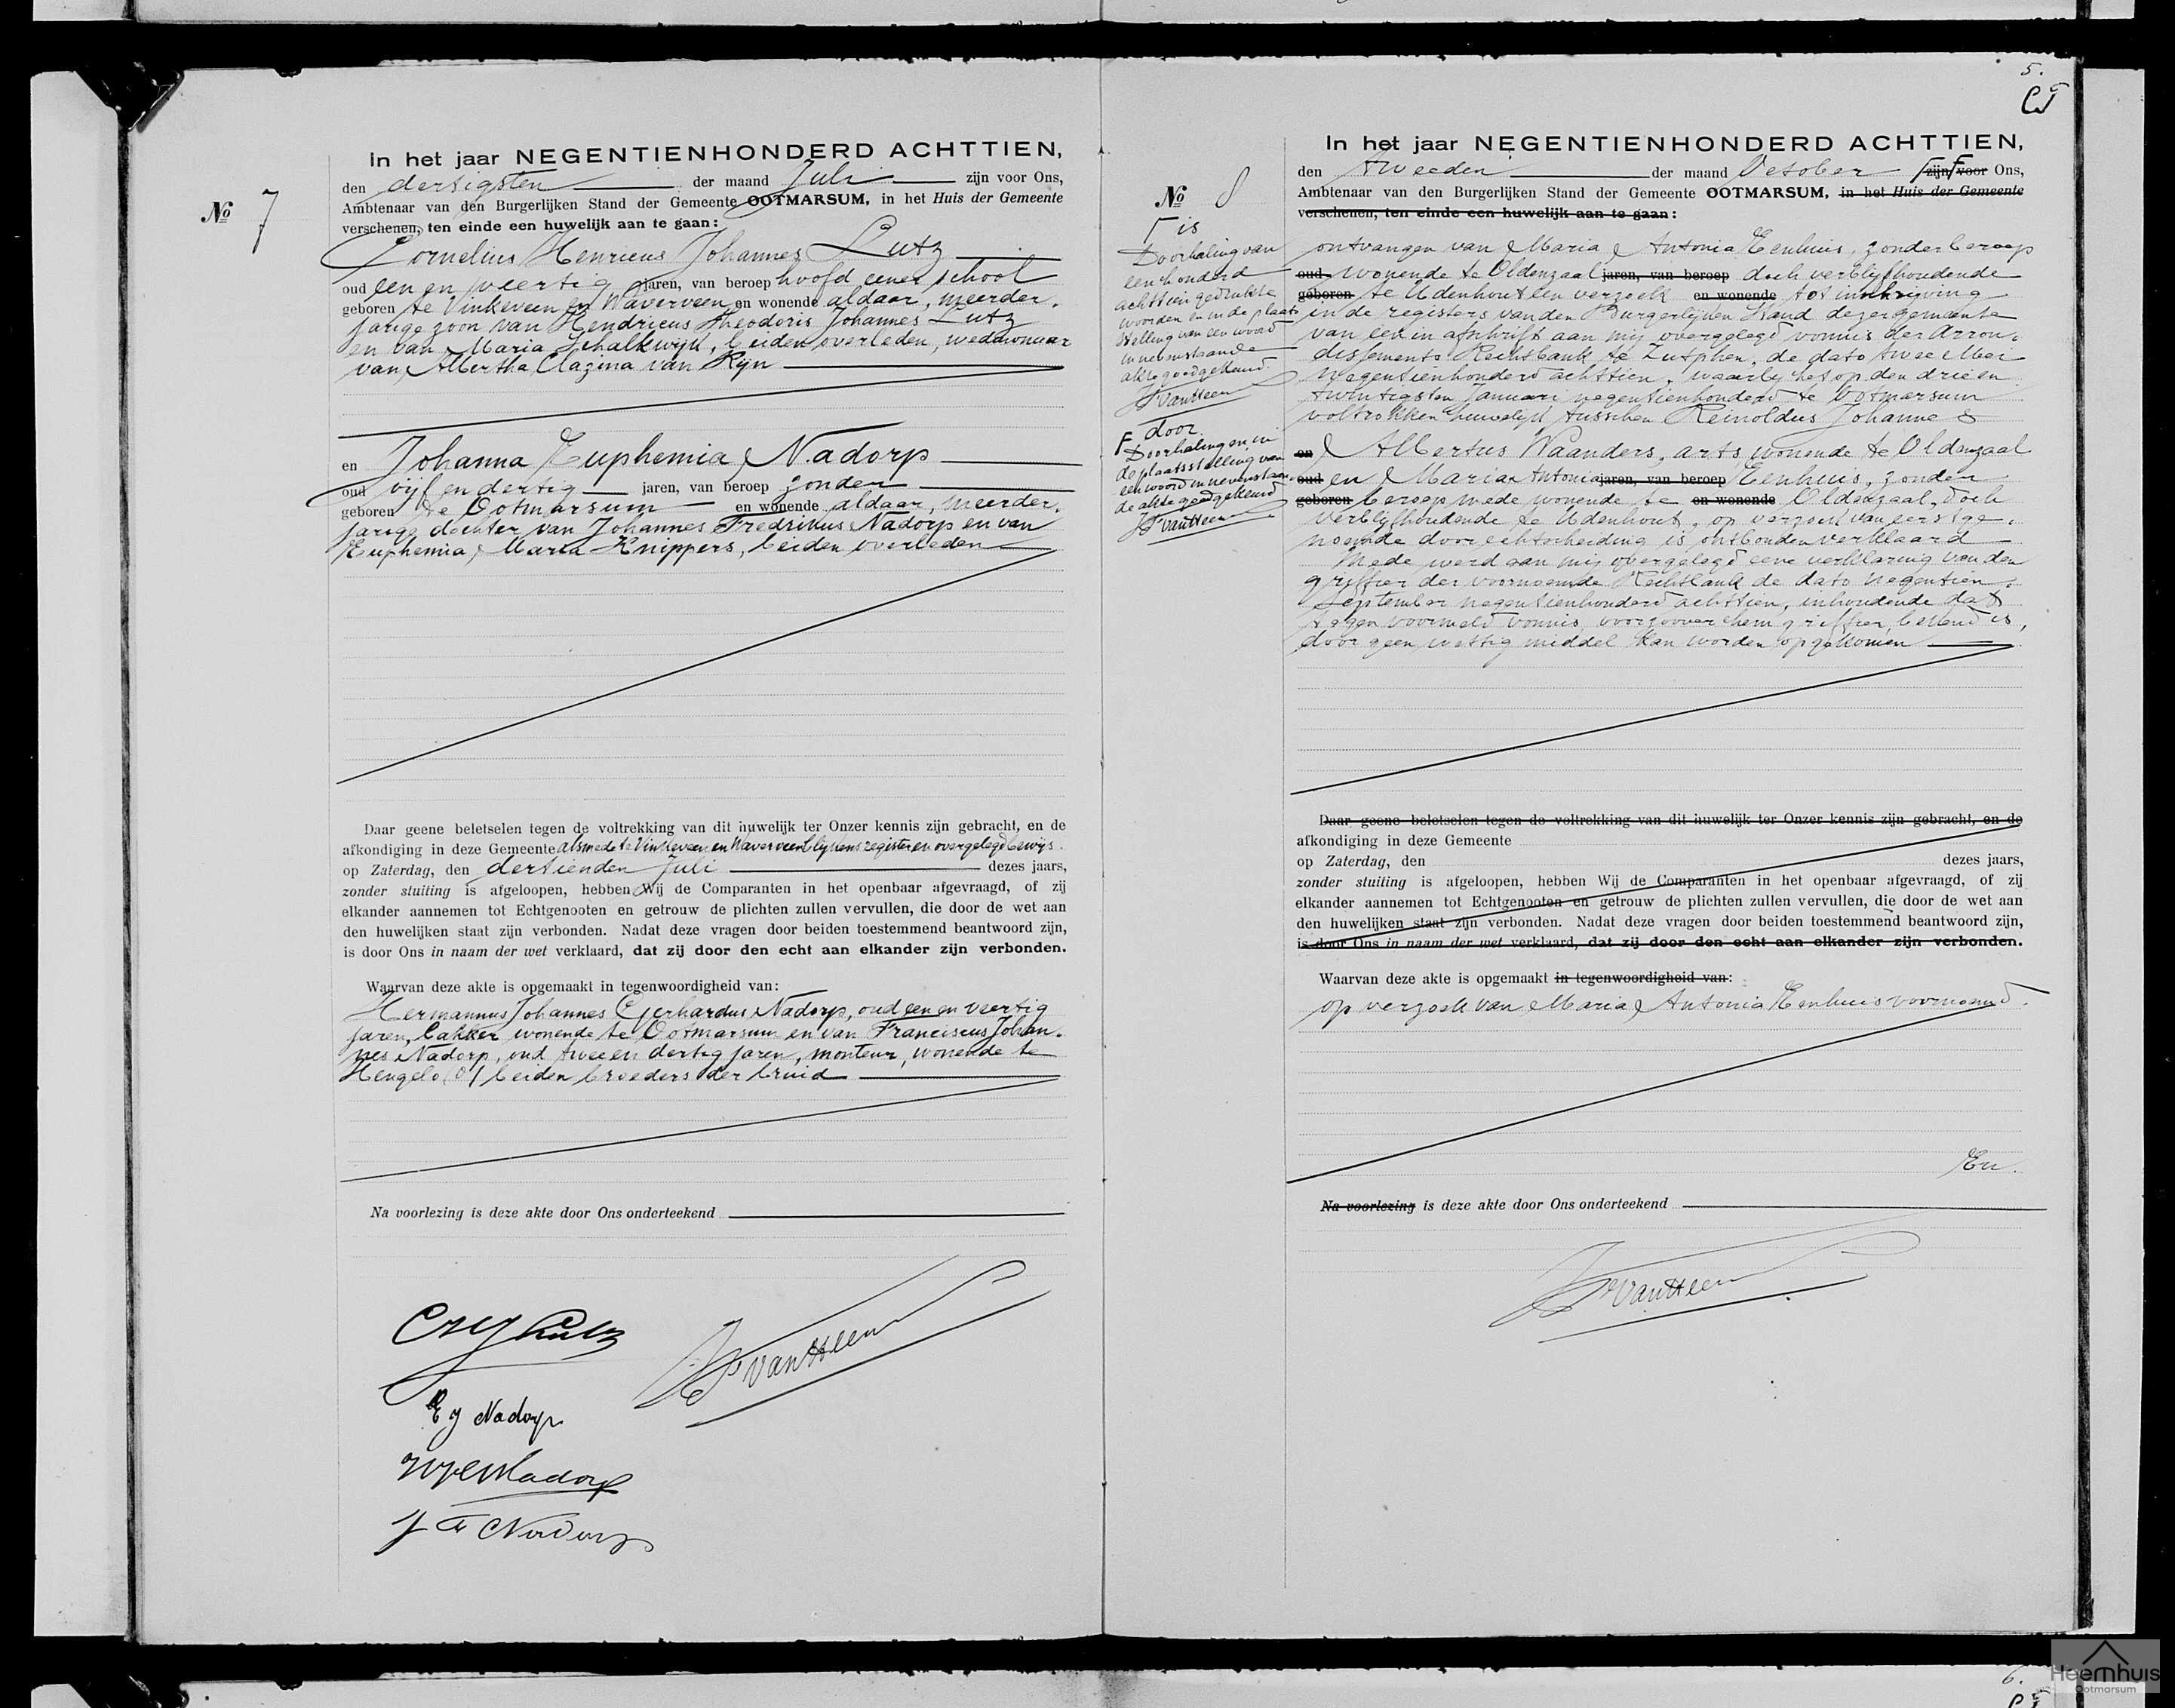 In het jaar NEGENTIENHONDERD ACHTTIEN,
den dertigsten der maand Juli zijn voor Ons,
Ambtenaar van den Burgerlijken Stand der Gemeente OOTMARSUM, in het Huis der Gemeente
verschenen, ten einde een huwelijk aan te gaan:
No 7
Cornelius Henricus Johannes Lutz
oud een en veertig jaren, van beroep hoofd eener school
geboren te Vinkeveen en Waverveen en wonende aldaar, meerder-
jarige zoon van Hendricus Theodoris Johannes Lutz
en van Maria Schalkwijk, beiden overleden, weduwnaar
van Albertha Clazina van Rijn
en Johanna Euphemia Nadorp
oud vijf en dertig jaren, van beroep zonder
geboren te Ootmarsum en wonende aldaar, meerder-
jarige dochter van Johannes Fredrikus Nadorp en van
Euphemia Maria Knippers, beiden overleden
Daar geene beletselen tegen de voltrekking van dit huwelijk ter Onzer kennis zijn gebracht, en de
afkondiging in deze Gemeente alsmede te Vinkeveen en Waverveen blijkens register en overgelegd bewijs
op Zaterdag, den dertienden Juli dezes jaars,
zonder stuiting is afgeloopen, hebben Wij de Comparanten in het openbaar afgevraagd, of zij
elkander aannemen tot Echtgenooten en getrouw de plichten zullen vervullen, die door de wet aan
den huwelijken staat zijn verbonden. Nadat deze vragen door beiden toestemmend beantwoord zijn,
is door Ons in naam der wet verklaard, dat zij door den echt aan elkander zijn verbonden.
Waarvan deze akte is opgemaakt in tegenwoordigheid van:
Hermannus Johannes Gerhardus Nadorp, oud een en veertig
jaren, bakker wonende te Ootmarsum en van Franciscus Johan-
nes Nadorp, oud twee en dertig jaren, monteur, wonende te
Hengelo (O) beiden broeders der bruid
Na voorlezing is deze akte door Ons onderteekend
CHJ Lutz
vanHeen
E J Nadorp
Nadorp
J F Nadorp
5.
In het jaar NEGENTIENHONDERD ACHTTIEN,
den tweeden der maand October zijn voor Ons,
Ambtenaar van den Burgerlijken Stand der Gemeente OOTMARSUM, in het Huis der Gemeente
verschenen, ten einde een huwelijk aan te gaan:
No 8
is
Doorhaling van
een honderd
achttien gedrukte
woorden en in de plaats
stelling van een woord
in nevenstaande
akte goedgekeurd
vanHeen
F door
Doorhaling en in
de plaatsstelling van
een woord in nevenstaan-
de akte goedgekeurd
vanHeen
ontvangen van Maria Antonia Eenhuis, zonder beroep
oud wonende te Oldenzaal jaren, van beroep doch verblijfhoudende
geboren te Udenhout een verzoek en wonende tot inschrijving
in de registers van den Burgerlijken Stand dezer gemeente
van een in afschrift aan mij overgelegd vonnis der Arron-
dissements Rechtbank te Zutphen, de dato twee Mei
negentienhonderd achttien, waarbij het op den drie en
twintigsten Januari negentienhonderd te Ootmarsum
voltrokken huwelijk tusschen Reinoldus Johanne s
en Albertus Waanders, arts wonende te Oldenzaal
oud en Maria Antonia jaren, van beroep Eenhuis, zonder
geboren beroep mede wonende te en wonende Oldenzaal, doch
verblijfhoudende te Udenhout, op verzoek van eerstge-
noemde door echtscheiding is ontbonden verklaard
Mede werd aan mij overgelegd eene verklaring van den
griffier der voornoemde Rechtbank de dato negentien
September negentienhonderd achttien, inhoudende dat
tegen voormeld vonnis, voorzoover hem griffier bekend is,
door geen wettig middel kan worden opgekomen
Daar geene beletselen tegen de voltrekking van dit huwelijk ter Onzer kennis zijn gebracht, en de
afkondiging in deze Gemeente
op Zaterdag, den dezes jaars,
zonder stuiting is afgeloopen, hebben Wij de Comparanten in het openbaar afgevraagd, of zij
elkander aannemen tot Echtgenooten en getrouw de plichten zullen vervullen, die door de wet aan
den huwelijken staat zijn verbonden. Nadat deze vragen door beiden toestemmend beantwoord zijn,
is door Ons in naam der wet verklaard, dat zij door den echt aan elkander zijn verbonden.
Waarvan deze akte is opgemaakt in tegenwoordigheid van:
op verzoek van Maria Antonia Eenhuis voornoemd.
En
Na voorlezing is deze akte door Ons onderteekend
vanHeen
6.
Heemhuis
Ootmarsum